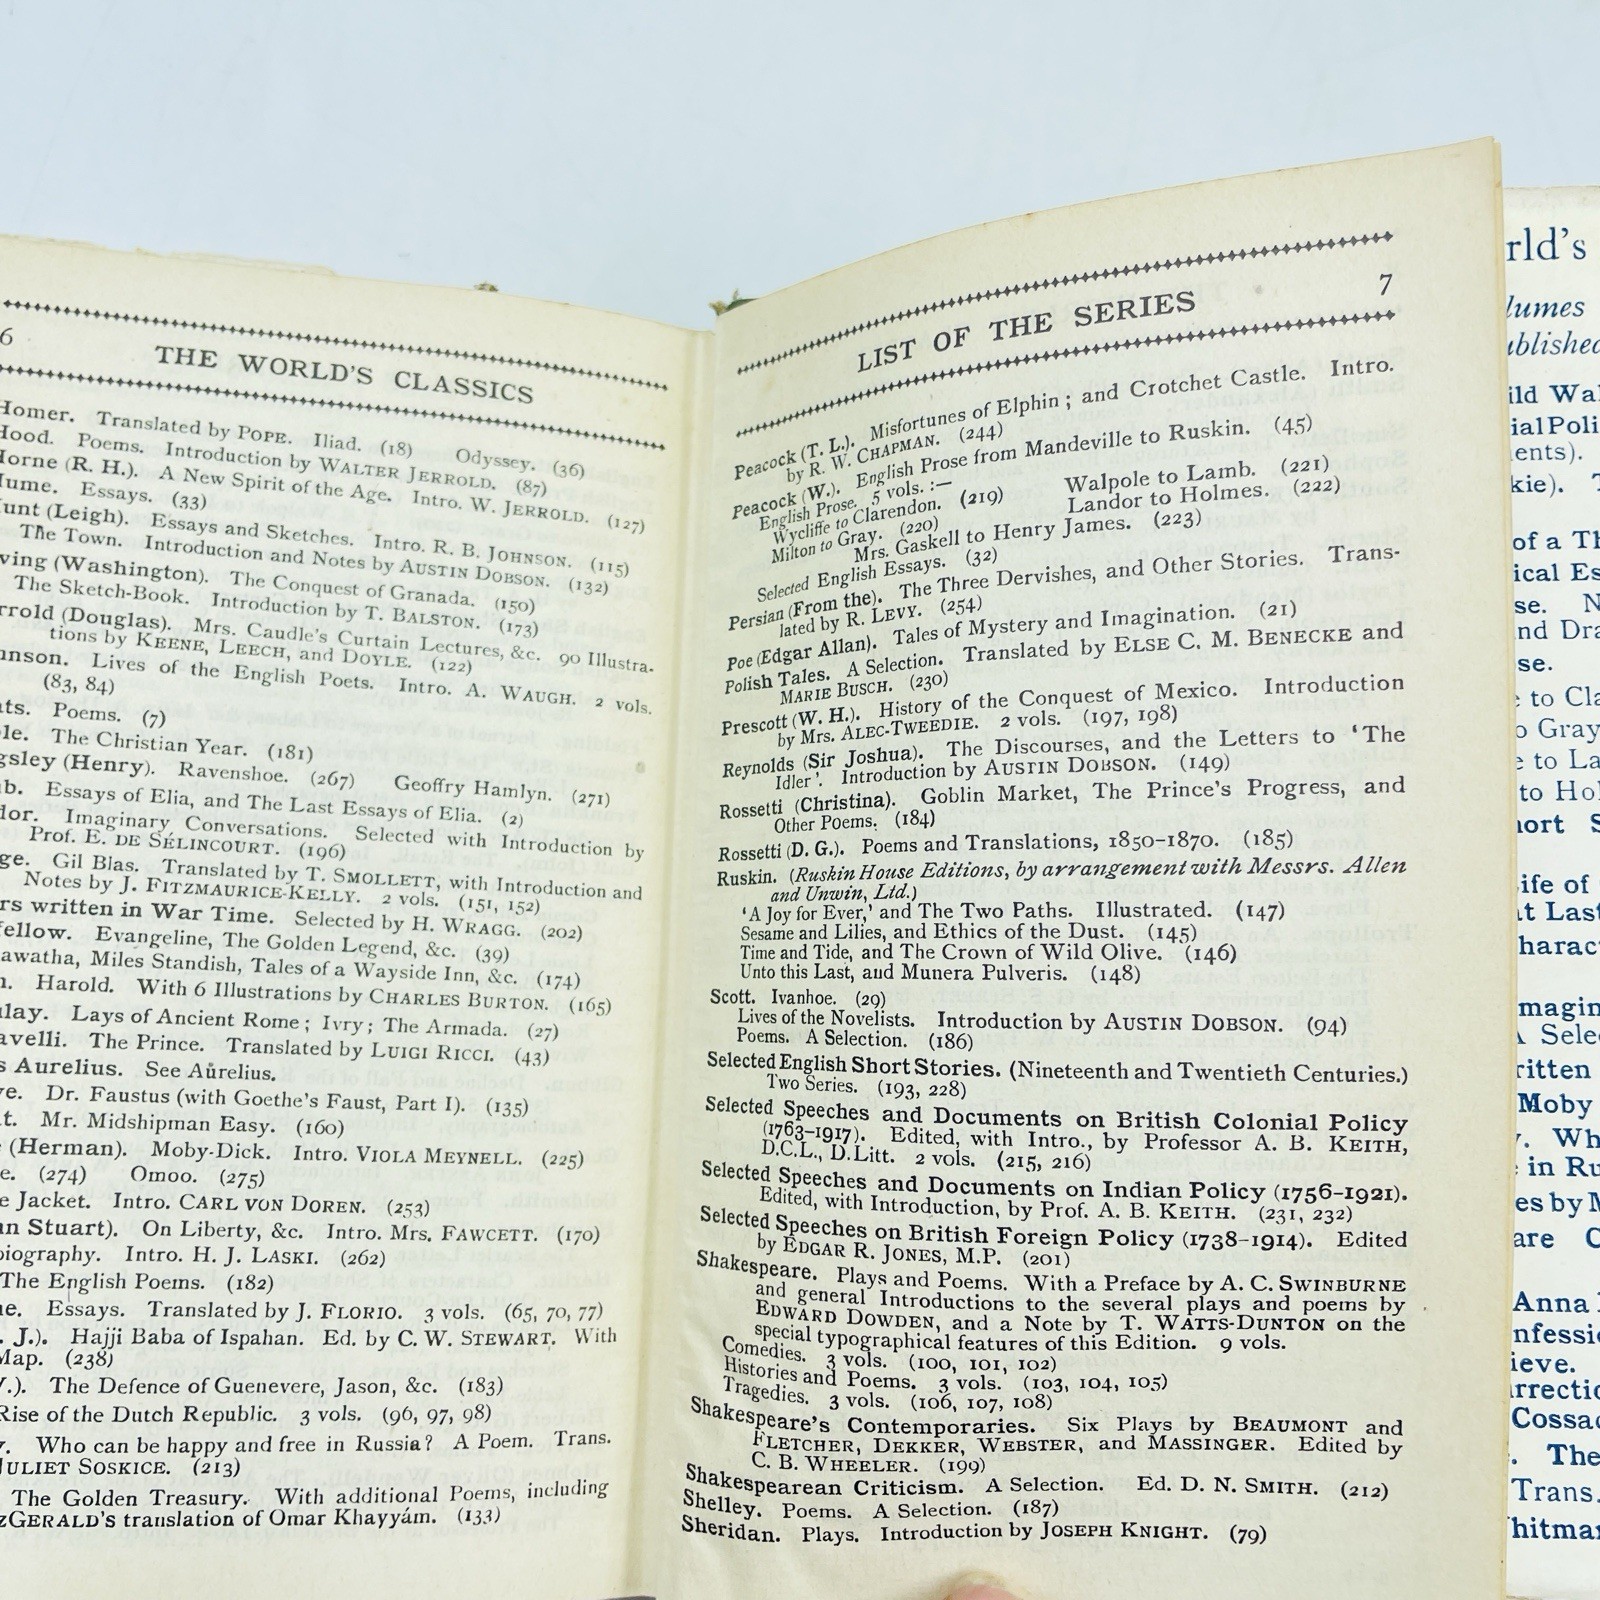 6
THE WORLD'S CLASSICS
Homer. Translated by POPE. Iliad. (18) Odyssey. (36)
Hood. Poems. Introduction by WALTER JERROLD. (87)
Horne (R. H.). A New Spirit of the Age. Intro. W. JERROLD. (127)
Hume. Essays. (33)
unt (Leigh). Essays and Sketches. Intro. R. B. JOHNSON. (115)
The Town. Introduction and Notes by AUSTIN DOBSON. (132)
ving (Washington). The Conquest of Granada. (150)
The Sketch-Book. Introduction by T. BALSTON. (173)
rrold (Douglas). Mrs. Caudle's Curtain Lectures, &c. 90 Illustra-
tions by KEENE, LEECH, and DOYLE. (122)
hnson. Lives of the English Poets. Intro. A. WAUGH. 2 vols.
(83, 84)
ats. Poems. (7)
ble. The Christian Year. (181)
gsley (Henry). Ravenshoe. (267) Geoffry Hamlyn. (271)
b. Essays of Elia, and The Last Essays of Elia. (2)
dor. Imaginary Conversations. Selected with Introduction by
Prof. E. DE SÉLINCOURT. (196)
ge. Gil Blas. Translated by T. SMOLLETT, with Introduction and
Notes by J. FITZMAURICE-KELLY. 2 vols. (151, 152)
rs written in War Time. Selected by H. WRAGG. (202)
fellow. Evangeline, The Golden Legend, &c. (39)
awatha, Miles Standish, Tales of a Wayside Inn, &c. (174)
n. Harold. With 6 Illustrations by CHARLES BURTON. (165)
ulay. Lays of Ancient Rome; Ivry; The Armada. (27)
avelli. The Prince. Translated by LUIGI RICCI. (43)
s Aurelius. See Aurelius.
ve. Dr. Faustus (with Goethe's Faust, Part I). (135)
t. Mr. Midshipman Easy. (160)
(Herman). Moby-Dick. Intro. VIOLA MEYNELL. (225)
e. (274) Omoo. (275)
e Jacket. Intro. CARL VAN DOREN. (253)
n Stuart). On Liberty, &c. Intro. Mrs. FAWCETT. (170)
biography. Intro. H. J. LASKI. (262)
The English Poems. (182)
ne. Essays. Translated by J. FLORIO. 3 vols. (65, 70, 77)
. J.). Hajji Baba of Ispahan. Ed. by C. W. STEWART. With
Map. (238)
.). The Defence of Guenevere, Jason, &c. (183)
Rise of the Dutch Republic. 3 vols. (96, 97, 98)
. Who can be happy and free in Russia? A Poem. Trans.
JULIET SOSKICE. (213)
The Golden Treasury. With additional Poems, including
zGERALD'S translation of Omar Khayyám. (133)
LIST OF THE SERIES 7
Peacock (T. L.). Misfortunes of Elphin; and Crotchet Castle. Intro.
by R. W. CHAPMAN. (244)
Peacock (W.). English Prose from Mandeville to Ruskin. (45)
English Prose. 5 vols. :—
Wycliffe to Clarendon. (219) Walpole to Lamb. (221)
Milton to Gray. (220) Landor to Holmes. (222)
Mrs. Gaskell to Henry James. (223)
Selected English Essays. (32)
Persian (From the). The Three Dervishes, and Other Stories. Trans-
lated by R. LEVY. (254)
Poe (Edgar Allan). Tales of Mystery and Imagination. (21)
Polish Tales. A Selection. Translated by ELSE C. M. BENECKE and
MARIE BUSCH. (230)
Prescott (W. H.). History of the Conquest of Mexico. Introduction
by Mrs. ALEC-TWEEDIE. 2 vols. (197, 198)
Reynolds (Sir Joshua). The Discourses, and the Letters to 'The
Idler'. Introduction by AUSTIN DOBSON. (149)
Rossetti (Christina). Goblin Market, The Prince's Progress, and
Other Poems. (184)
Rossetti (D. G.). Poems and Translations, 1850-1870. (185)
Ruskin. (Ruskin House Editions, by arrangement with Messrs. Allen
and Unwin, Ltd.)
'A Joy for Ever,' and The Two Paths. Illustrated. (147)
Sesame and Lilies, and Ethics of the Dust. (145)
Time and Tide, and The Crown of Wild Olive. (146)
Unto this Last, and Munera Pulveris. (148)
Scott. Ivanhoe. (29)
Lives of the Novelists. Introduction by AUSTIN DOBSON. (94)
Poems. A Selection. (186)
Selected English Short Stories. (Nineteenth and Twentieth Centuries.)
Two Series. (193, 228)
Selected Speeches and Documents on British Colonial Policy
(1763-1917). Edited, with Intro., by Professor A. B. KEITH,
D.C.L., D.Litt. 2 vols. (215, 216)
Selected Speeches and Documents on Indian Policy (1756-1921).
Edited, with Introduction, by Prof. A. B. KEITH. (231, 232)
Selected Speeches on British Foreign Policy (1738-1914). Edited
by EDGAR R. JONES, M.P. (201)
Shakespeare. Plays and Poems. With a Preface by A. C. SWINBURNE
and general Introductions to the several plays and poems by
EDWARD DOWDEN, and a Note by T. WATTS-DUNTON on the
special typographical features of this Edition. 9 vols.
Comedies. 3 vols. (100, 101, 102)
Histories and Poems. 3 vols. (103, 104, 105)
Tragedies. 3 vols. (106, 107, 108)
Shakespeare's Contemporaries. Six Plays by BEAUMONT and
FLETCHER, DEKKER, WEBSTER, and MASSINGER. Edited by
C. B. WHEELER. (199)
Shakespearean Criticism. A Selection. Ed. D. N. SMITH. (212)
Shelley. Poems. A Selection. (187)
Sheridan. Plays. Introduction by JOSEPH KNIGHT. (79)
rld's
lumes
ublished
ild Wal
ial Poli
ents).
kie). T
of a Th
ical Es
se. N
nd Dra
se.
e to Cla
o Gray
e to La
to Hol
hort S
ife of
at Last
harac
magin
A Selec
ritten
Moby
. Wh
in Ru
es by M
are C
Anna
nfessio
ieve.
rrectio
Cossac
. The
Trans.
hitman